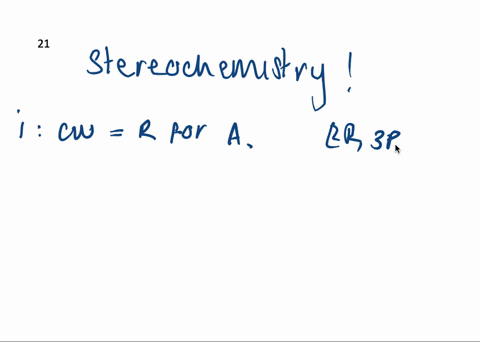 21
Stereochemistry !
i : cw = R for A. (2R, 3R